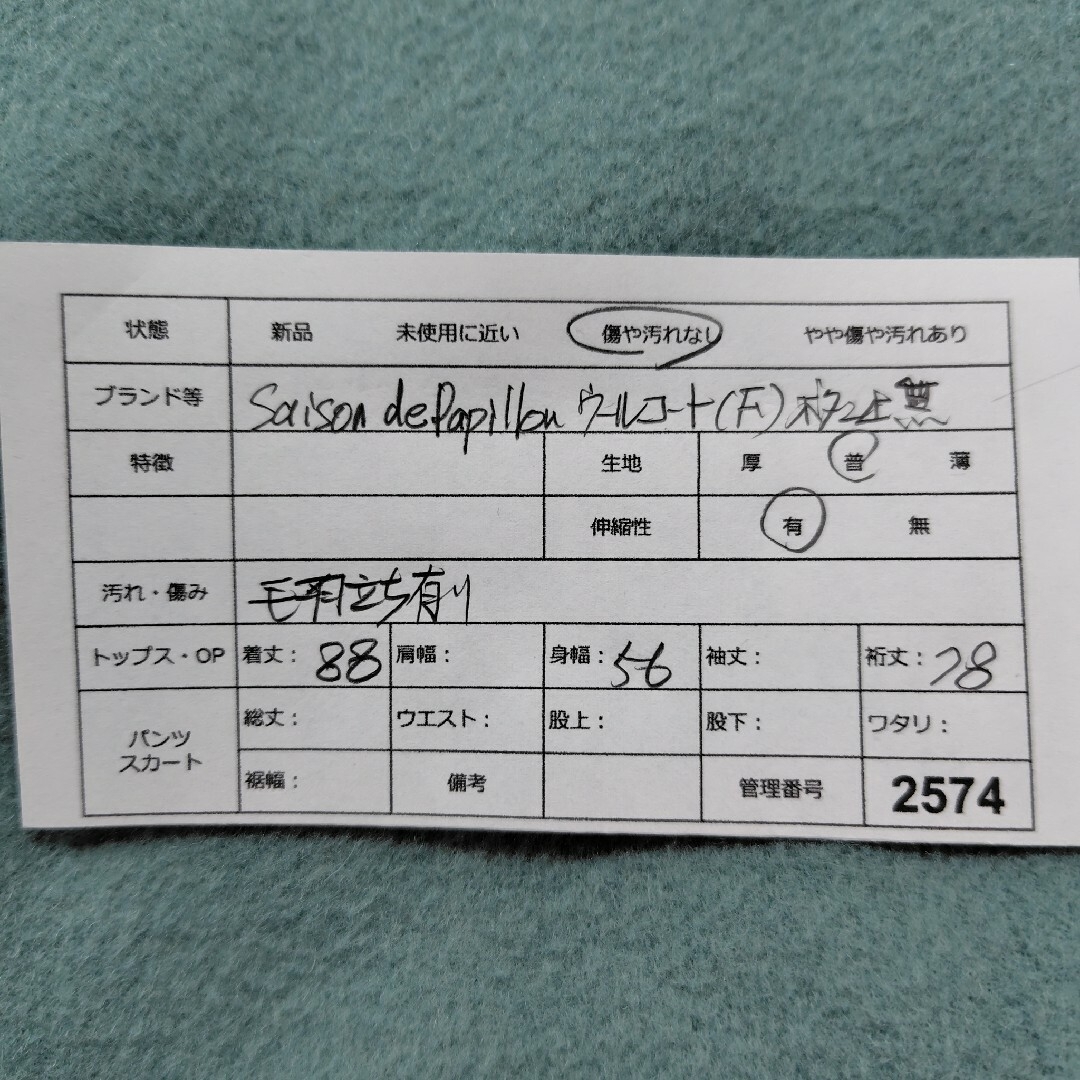 状態 新品 未使用に近い 傷や汚れなし やや傷や汚れあり
ブランド等 Saison de Papillon ウールコート(F) ボタン上無
特徴 生地 厚 普 薄
伸縮性 有 無
汚れ・傷み 毛羽立ち有り
トップス・OP 着丈: 88 肩幅: 身幅: 56 袖丈: 裄丈: 78
パンツ スカート 総丈: ウエスト: 股上: 股下: ワタリ:
裾幅: 備考 管理番号 2574